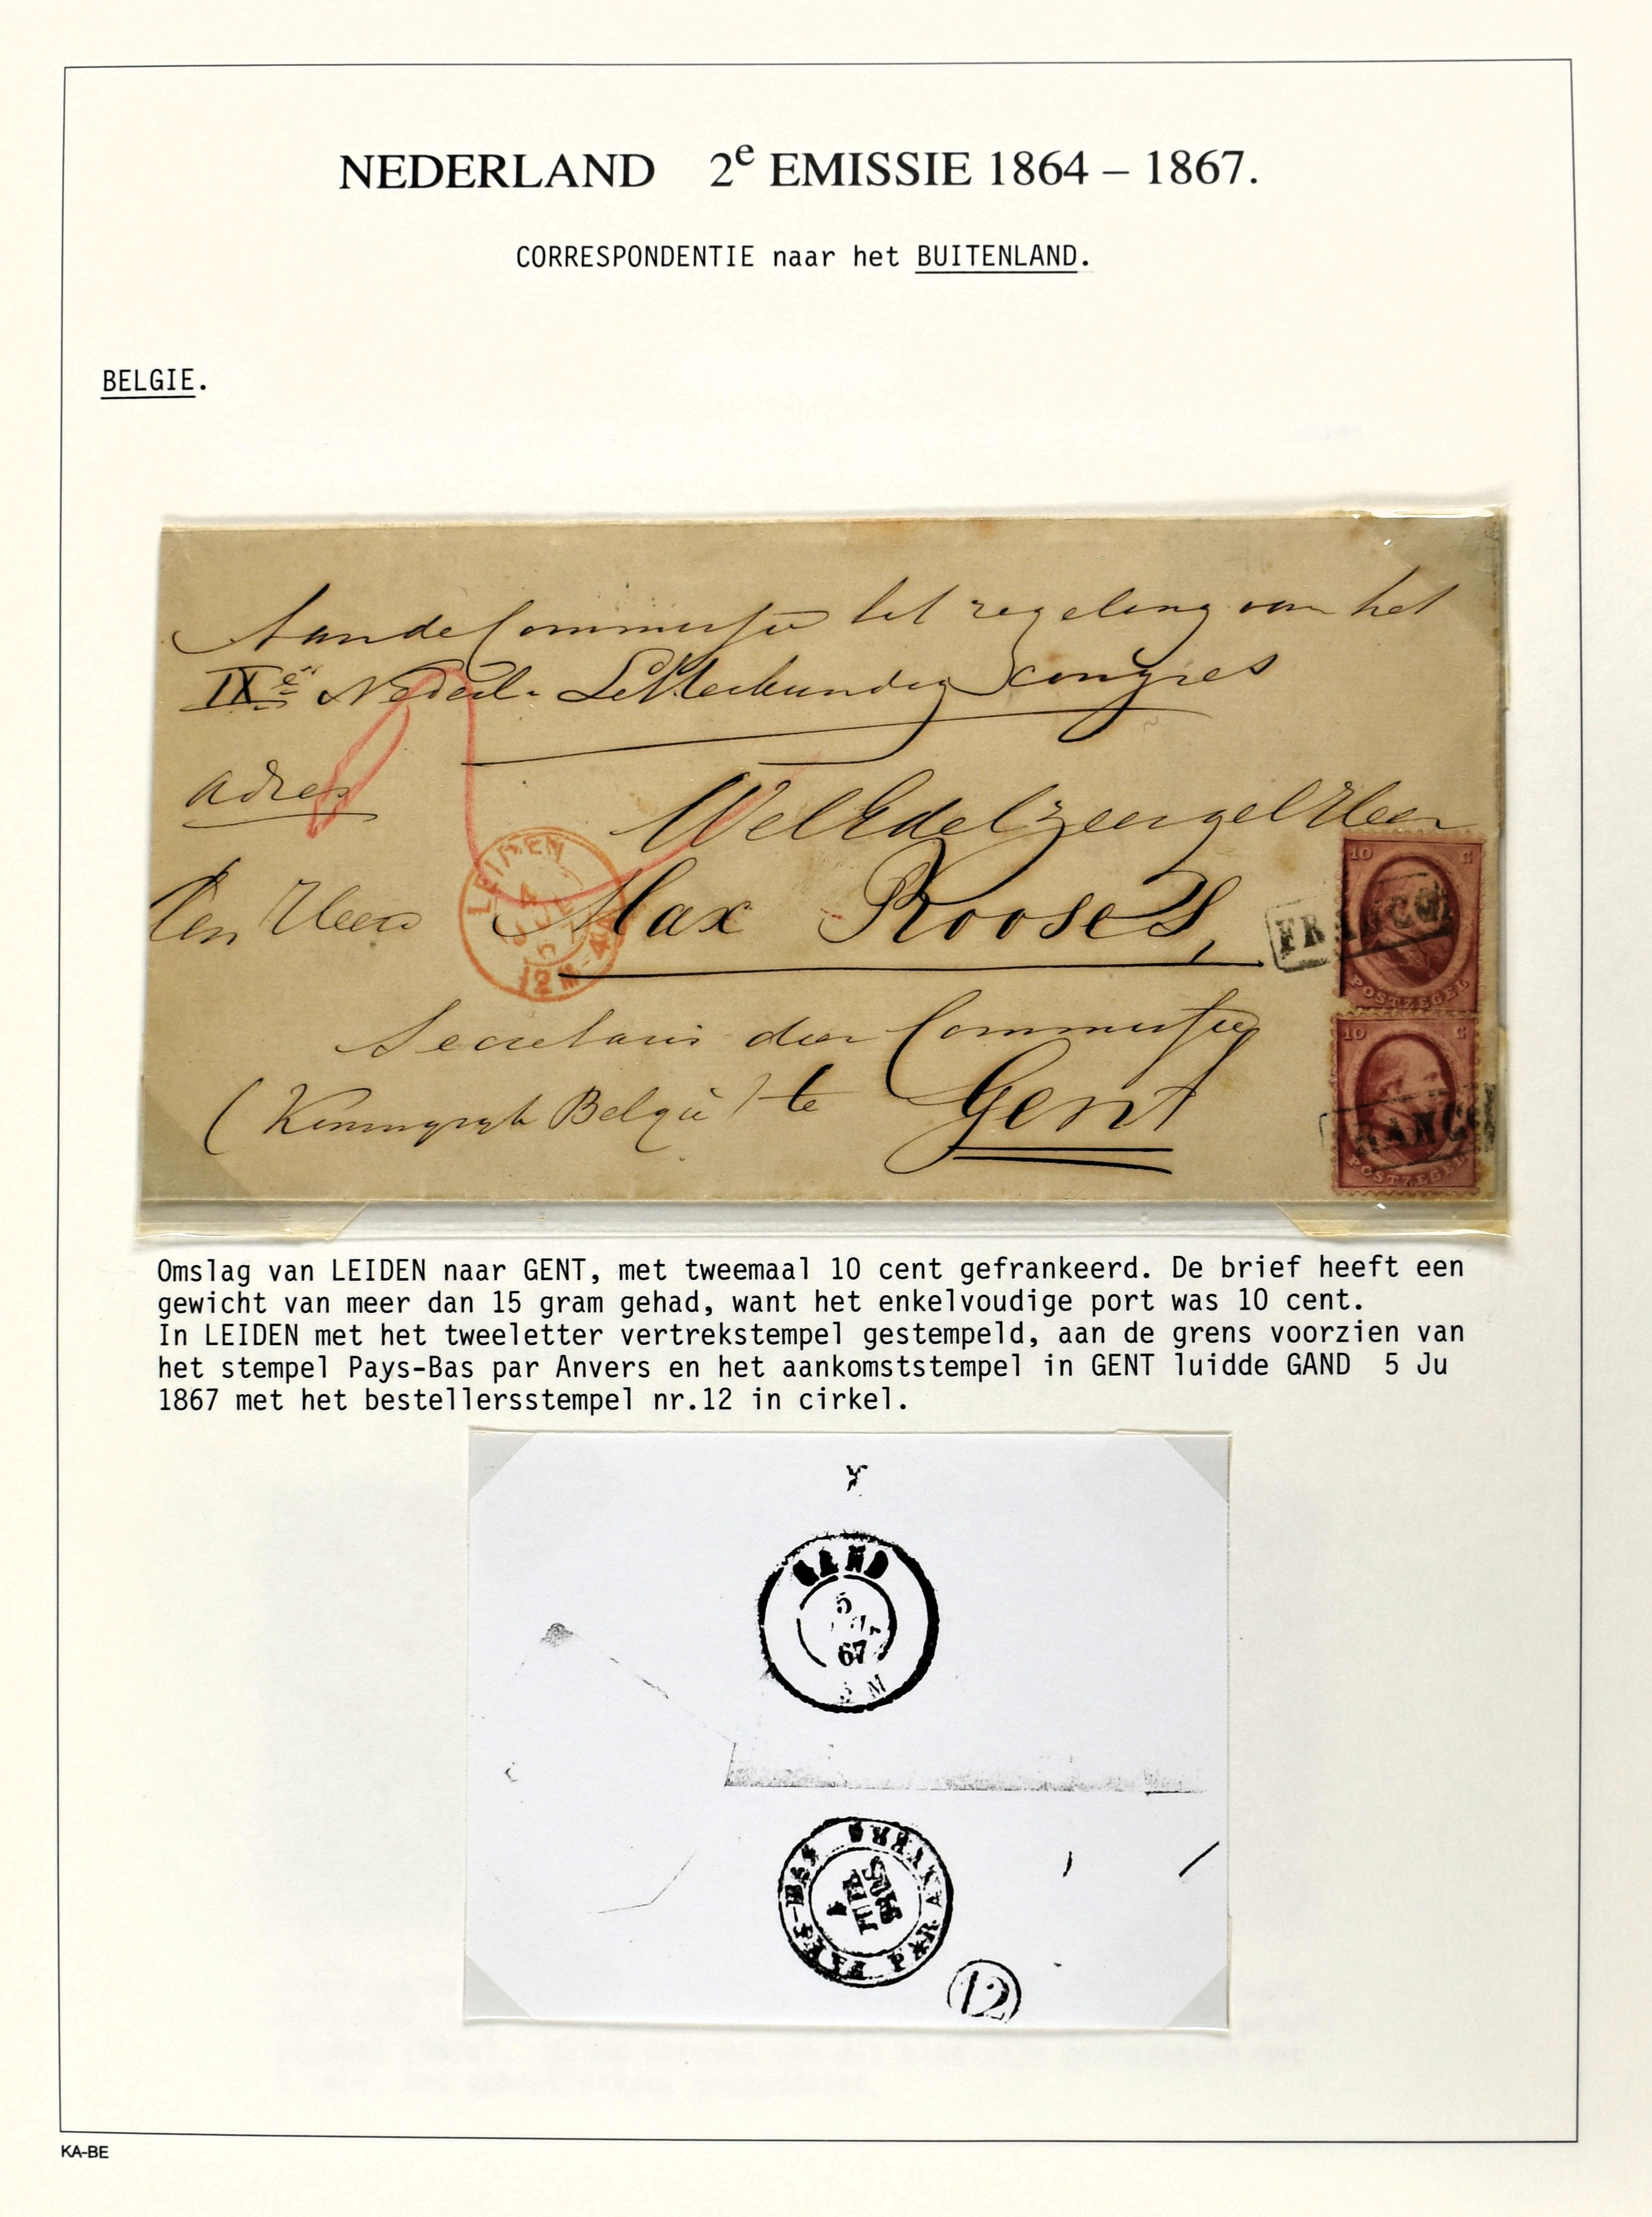 NEDERLAND 2e EMISSIE 1864 – 1867.
CORRESPONDENTIE naar het BUITENLAND.
BELGIE.
Aan de Commissie tot regeling van het
IXe Nederl. Letterkundig Congres
adres
WelEdelzeergel Heer
Den Heer Max Rooses,
Secretaris der Commissie
(Koningrijk België) te Gent
LEIDEN
12M-4N
10 C
FRANCO
POSTZEGEL
10 C
FRANCO
POSTZEGEL
Omslag van LEIDEN naar GENT, met tweemaal 10 cent gefrankeerd. De brief heeft een
gewicht van meer dan 15 gram gehad, want het enkelvoudige port was 10 cent.
In LEIDEN met het tweeletter vertrekstempel gestempeld, aan de grens voorzien van
het stempel Pays-Bas par Anvers en het aankomststempel in GENT luidde GAND 5 Ju
1867 met het bestellersstempel nr.12 in cirkel.
GAND
5
67
M
PAYS-BAS PAR ANVERS
12
KA-BE